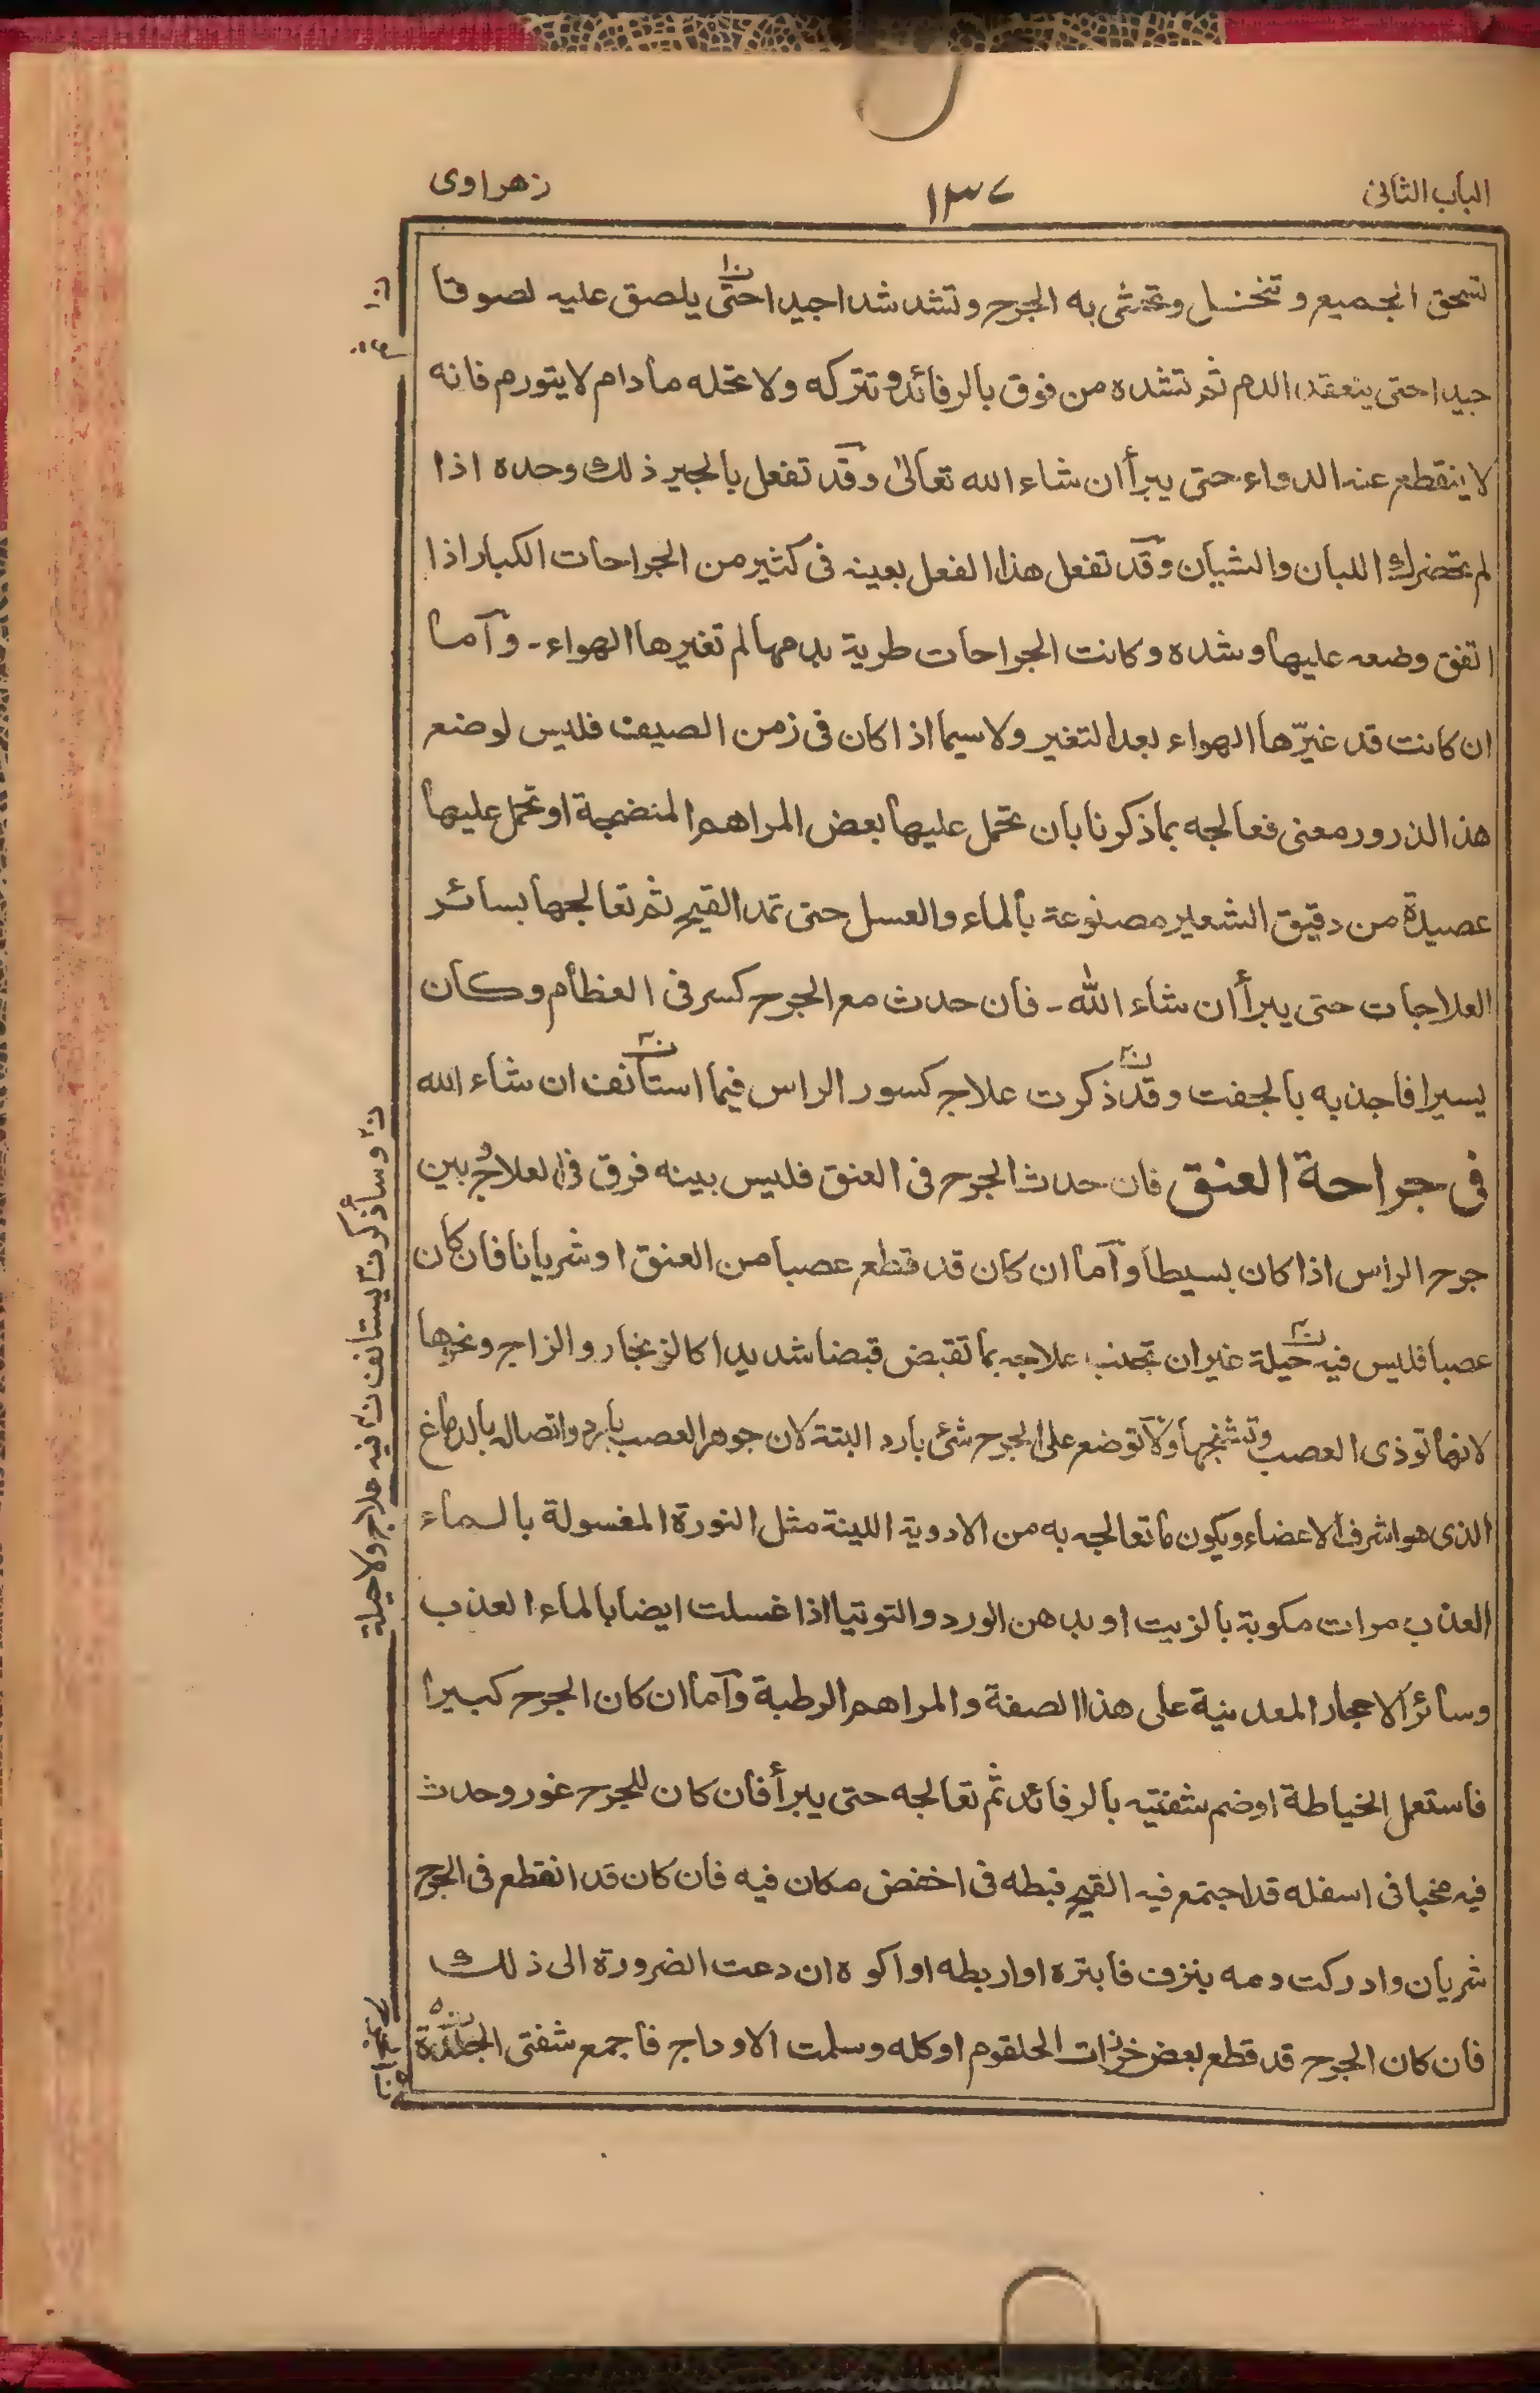 الباب الثانى
١٣٤
زهراوى
تسحق الجميع وتنخل وتحشى به الجرح وتشد شدا جيدا حتى يلصق عليه لصوقا
جيدا حتى ينعقد الدم ثم تشده من فوق بالرفائد وتتركه ولا تحله مادام لا يتورم فانه
لا ينقطع عنه الدواء حتى يبرأ ان شاء الله تعالى وقد تفعل بالجير ذلك وحده اذا
لم تحضرك اللبان والشيان وقد تفعل هذا الفعل بعينه فى كثير من الجراحات الكبار اذا
اتفق وضعه عليها وشده وكانت الجراحات طرية بدمها لم تغيرها الهواء - وآما
ان كانت قد غيّرها الهواء بعد التغير ولاسيما اذا كان فى زمن الصيف فليس لوضع
هذا الذرور معنى فعالجه بما ذكرنا بان تحمل عليها بعض المراهم المنضجة او تحمل عليها
عصيدة من دقيق الشعير مصنوعة بالماء والعسل حتى تمد القيح ثم تعالجها بسائر
العلاجات حتى يبرأ ان شاء الله - فان حدث مع الجرح كسر فى العظام وكان
يسيرا فاجذبه بالجفت وقد ذكرت علاج كسور الراس فيما استأنف ان شاء الله
فى جراحة العنق فان حدث الجرح فى العنق فليس بينه فرق فى العلاج وبين
جرح الراس اذا كان بسيطا وآما ان كان قد قطع عصبا من العنق او شريانا فان كان
عصبا فليس فيه حيلة غير ان تجتنب علاجه بما تقبض قبضا شديدا كالزنجار والزاج ونحوها
لانها توذى العصب وتشنجها ولا توضع على الجرح شئ بارد البتة لان جوهر العصب بارد واتصاله بالدماغ
الذى هو اشرف الاعضاء ويكون ما تعالجه به من الادوية اللينة مثل النورة المغسولة بالماء
العذب مرات مكوبة بالزيت او بدهن الورد والتوتيا اذا غسلت ايضا بالماء العذب
وسائر الاحجار المعدنية على هذا الصفة والمراهم الرطبة وآما ان كان الجرح كبيرا
فاستعمل الخياطة او ضم شفتيه بالرفائد ثم تعالجه حتى يبرأ فان كان للجرح غور وحدث
فيه مخبا فى اسفله قد اجتمع فيه القيح فبطه فى اخفض مكان فيه فان كان قد انقطع فى الجرح
شريان وادركت دمه ينزف فابتره او اربطه او اكوه ان دعت الضرورة الى ذلك
فان كان الجرح قد قطع بعض خرزات الحلقوم او كله وسلمت الاوداج فاجمع شفتى الجلدة
ن٢ وسأذكر ن٣ يستأنف ن٤ فيه علاج ولا حيلة